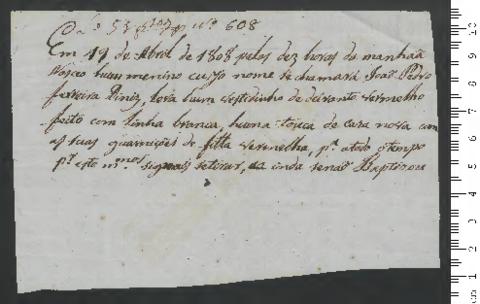 Nº 608
Em 19 de Abril de 1808 pelas dez horas da manhaã
Nasceo hum menino cujo nome se chamará Joaõ Pedro
Ferreira Diniz, leva hum vestidinho de durante vermelho
feito com linha branca, huma touca de cara nova com
as suas guarniçoes de fitta vermelha, pª atodo otempo
pr este mmos signaes setirar, ainda senaõ Baptizou
10
9
8
7
6
5
4
3
2
1
cm